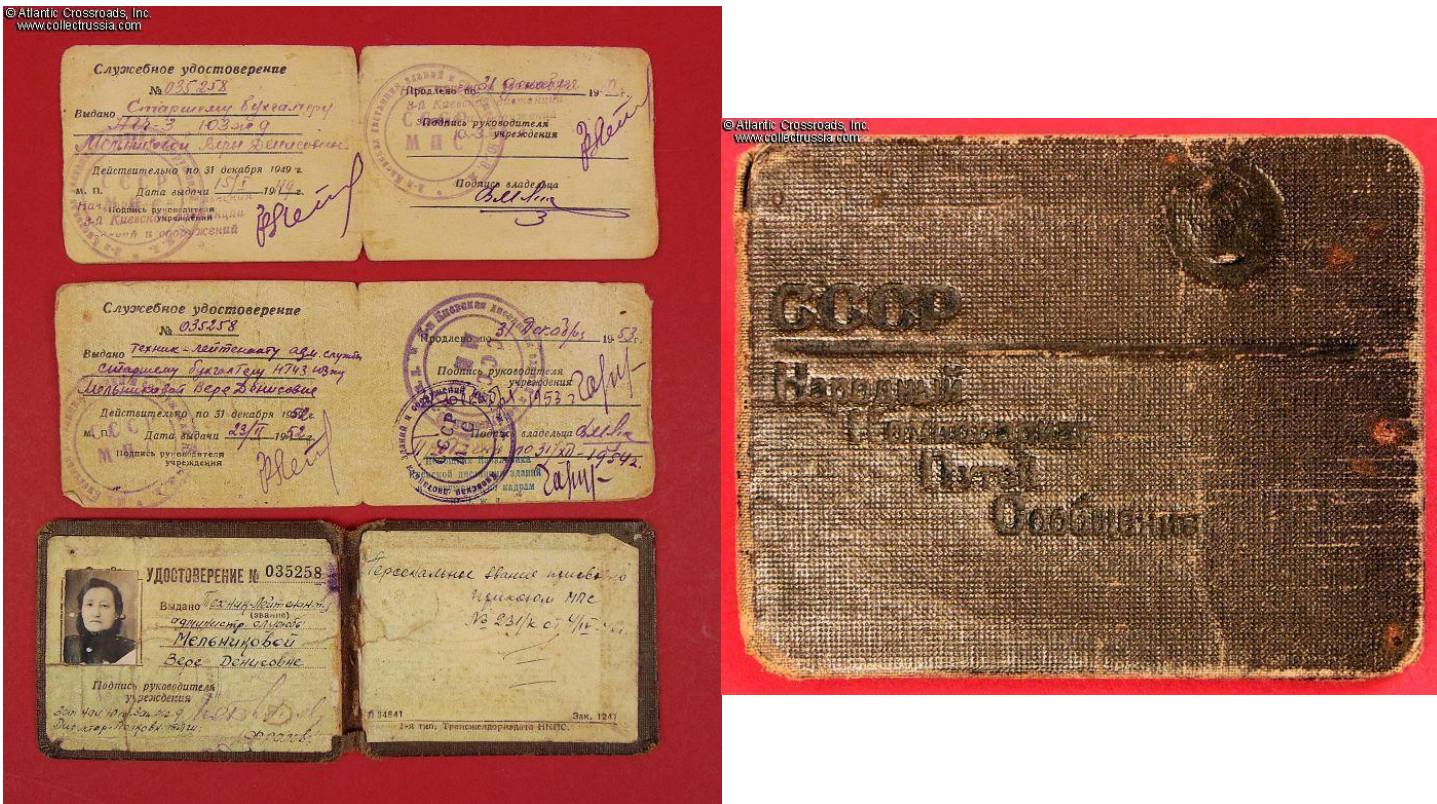 © Atlantic Crossroads, Inc.
www.collectrussia.com
Служебное удостоверение
№ 035258
Выдано Старшему бухгалтеру
НГЧ-3 ЮЗжд
Мельниковой Вере Денисовне
Действительно по 31 декабря 1949 г.
М. П. Дата выдачи 15/I 1949
Подпись руководителя
учреждения
Продлено по 31 декабря 19
Подпись руководителя
учреждения
МПС
Подпись владельца
Служебное удостоверение
№ 035258
Выдано техник-лейтенанту адм. службы
старшему бухгалтеру НГЧ3 ЮЗжд
Мельниковой Вере Денисовне
Действительно по 31 декабря 1952 г.
М. П. Дата выдачи 23/II 1952 г.
Подпись руководителя
учреждения
Продлено по 31 декабря 1953 г.
Подпись руководителя
учреждения
1953 г.
Подпись владельца
по 31/XII-1954 г.
УДОСТОВЕРЕНИЕ № 035258
Выдано Техник-лейтенанту
(звание)
администр. службы
Мельниковой
Вере Денисовне
Подпись руководителя
учреждения
Персональное звание присвоено
приказом МПС
№ 231/к от
П 34841 Зак. 1241
1-я тип. Трансжелдориздата НКПС.
© Atlantic Crossroads, Inc.
www.collectrussia.com
СССР
Народный
Комиссариат
Путей
Сообщения